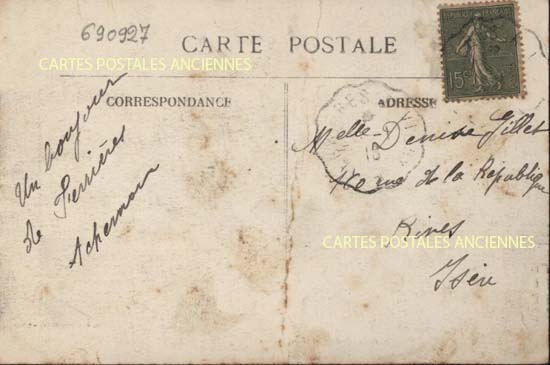 690927
CARTE POSTALE
CARTES POSTALES ANCIENNES
CORRESPONDANCE
ADRESSE
RÉPUBLIQUE FRANÇAISE
15c
Un bonjour
de Ferrières
Ackermann
Melle Denise Gillet
rue de la République
Rives
Isère
CARTES POSTALES ANCIENNES